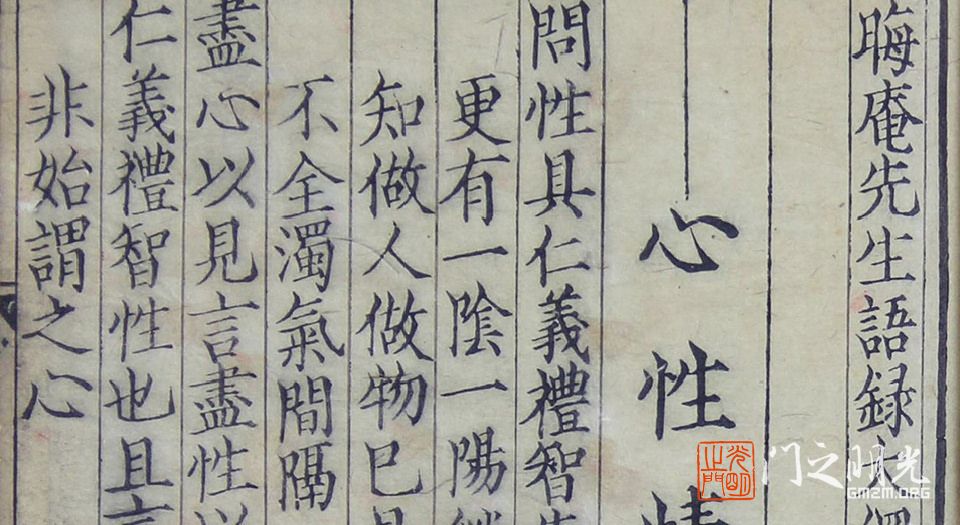 晦庵先生語録
心性
問性具仁義禮智
更有一陰一陽
知做人做物已
不全濁氣間隔
盡心以見言盡性
仁義禮智性也且
非始謂之心
门之明光
GMZM.ORG